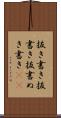 抜き書き抜
書き抜書ぬ
き書き